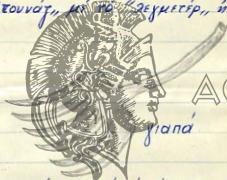 τουνάζ„ με το "λεγμετέρ„ ή
ΑΘ
γιαπά